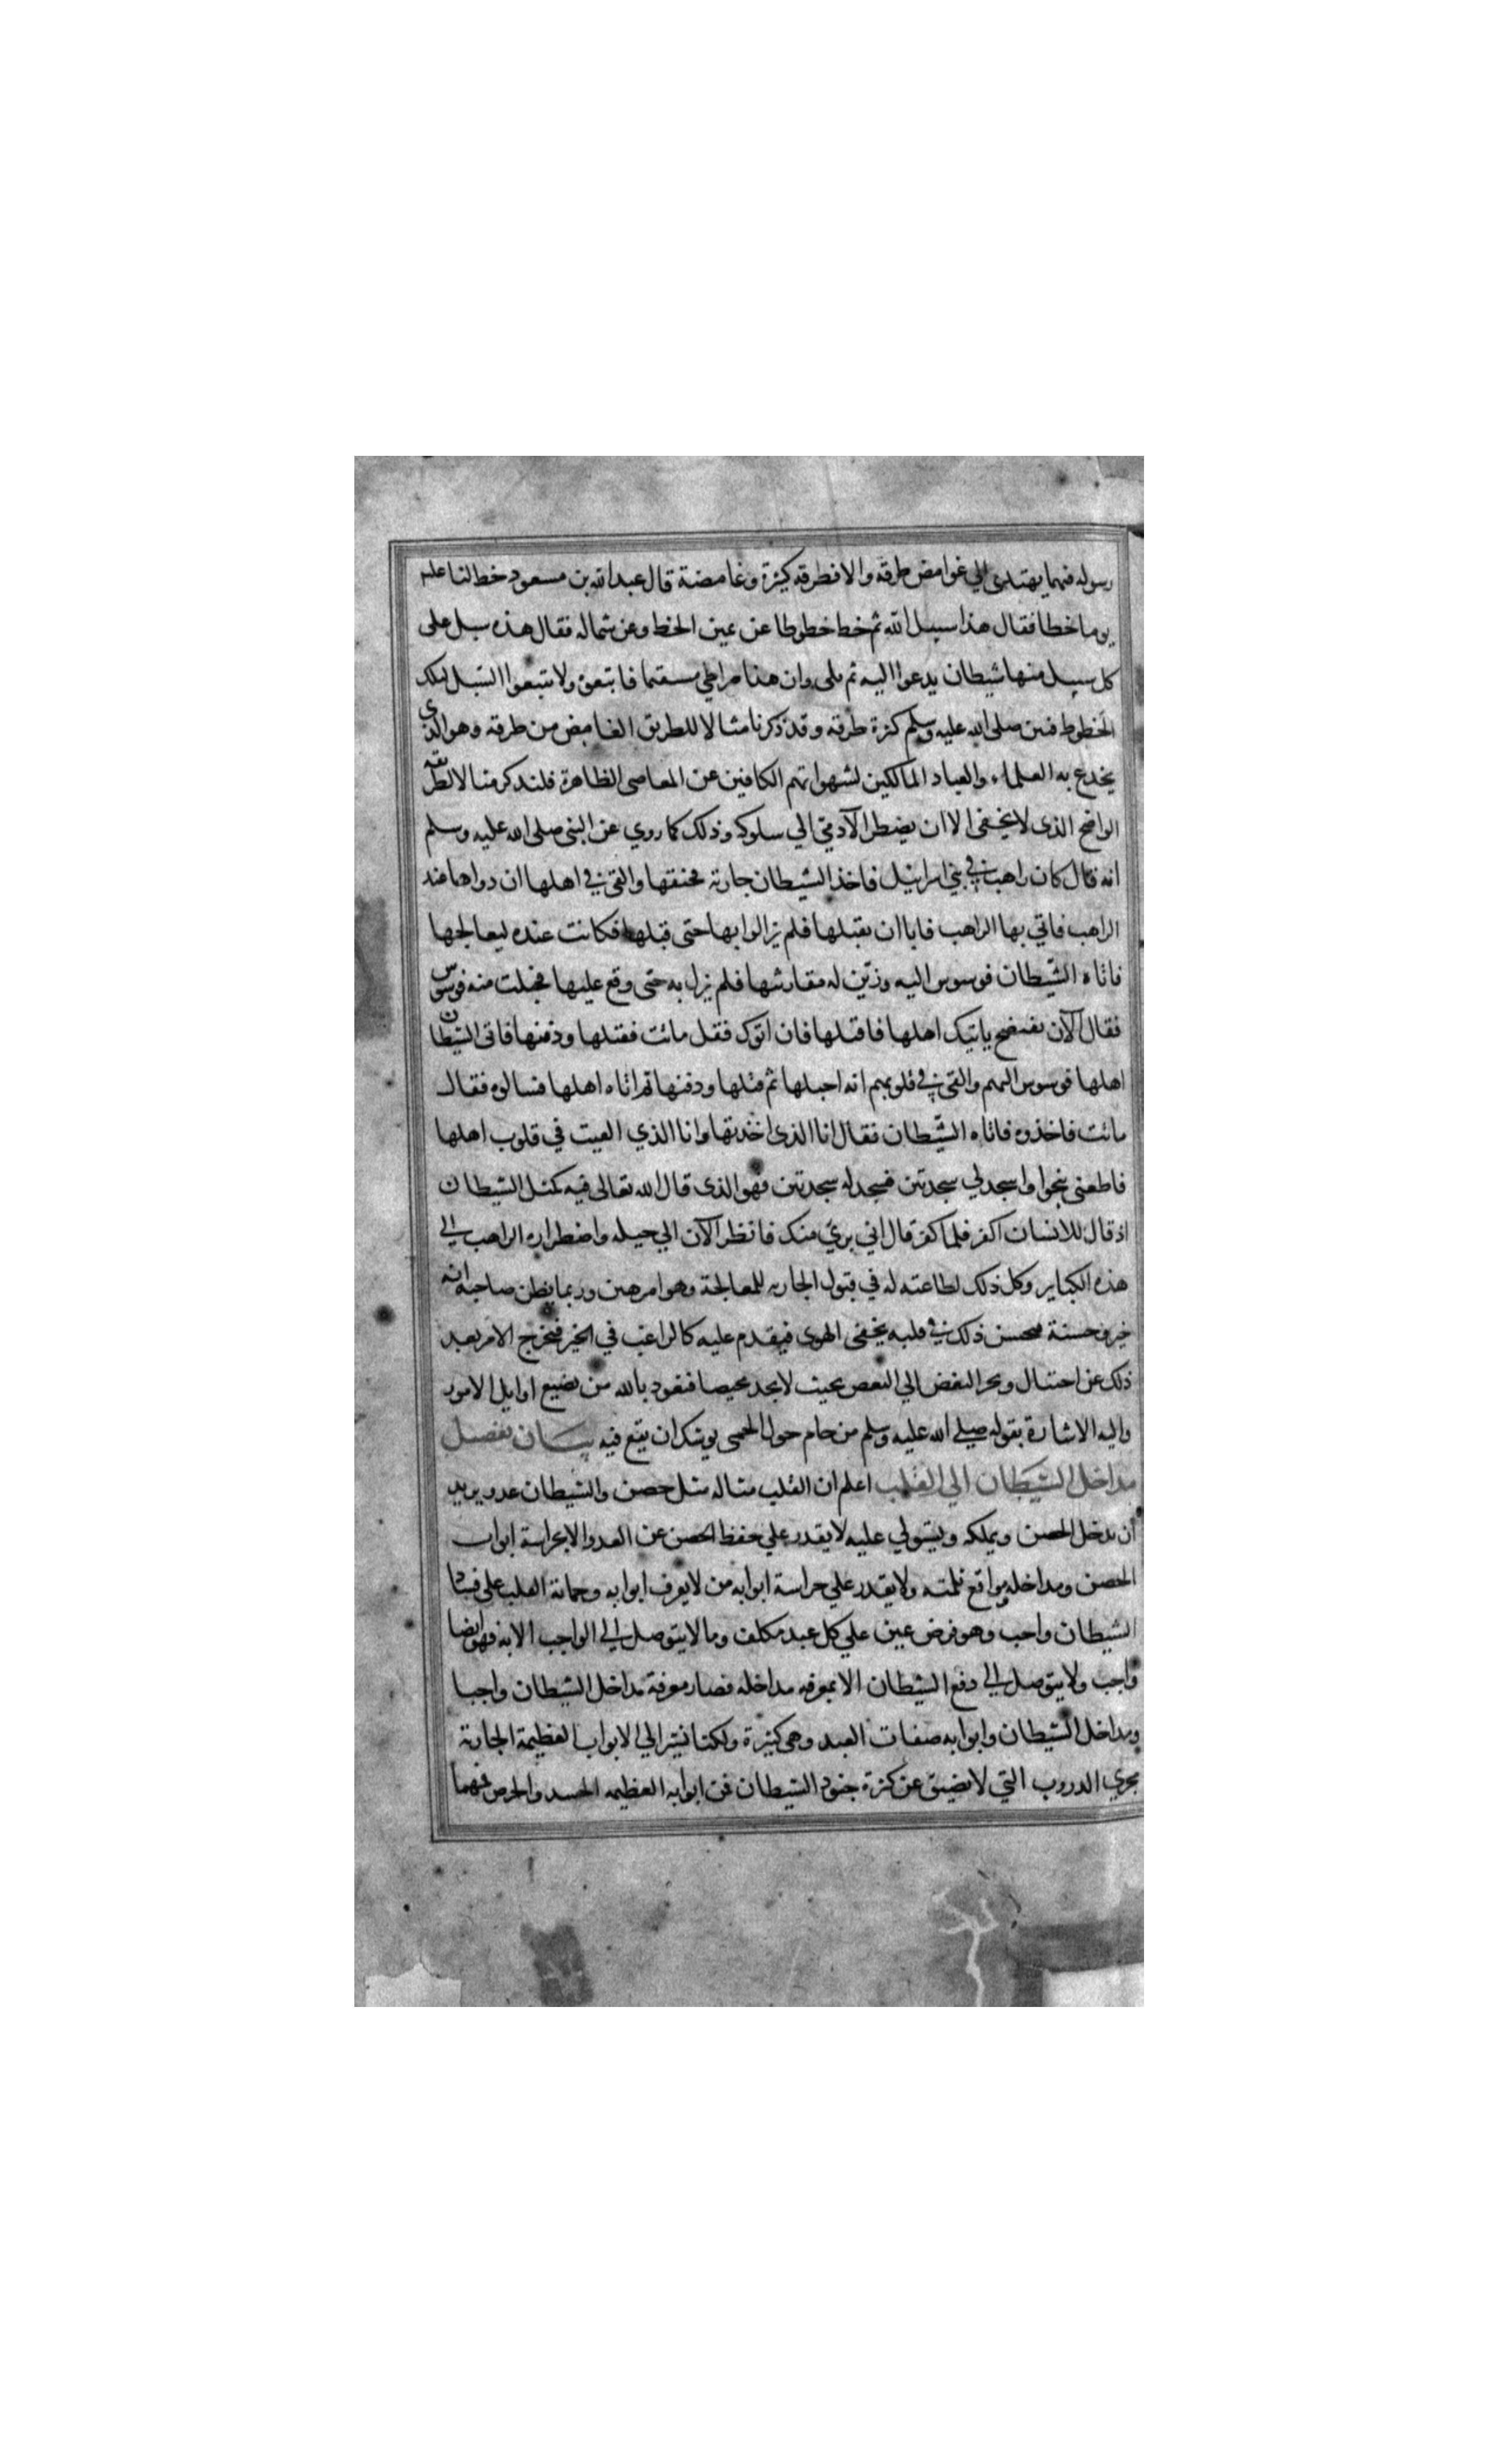 رسوله فيما يهتدى الي غوامض طرقه والا فطرقه كثيرة وغامضة قال عبد الله بن مسعود خط لنا علم
يوما خطا فقال هذا سبيل الله ثم خط خطوطا عن يمين الخط وعن شماله فقال هذه سبل على
كل سبيل منها شيطان يدعوا اليه ثم تلى وان هذا صراطي مستقيما فاتبعوه ولا تتبعوا السبل لتلك
الخطوط فبين صلى الله عليه وسلم كثرة طرقه وقد ذكرنا مثالا للطريق الغامض من طرقه وهو الذي
يخدع به العلماء والعباد المالكين لشهواتهم الكافين عن المعاصى الظاهرة فلنذكر مثالا لطريقه
الواضح الذى لا يخفى الا ان يضطر الآدمي الي سلوكه وذلك كما روي عن النبى صلى الله عليه وسلم
انه قال كان راهب في بني اسرائيل فاخذ الشيطان جارية فخنقها والقى في اهلها ان دواها عند
الراهب فاتي بها الراهب فابا ان يقبلها فلم يزالوا بها حتى قبلها فكانت عنده ليعالجها
فاتاه الشيطان فوسوس اليه وزين له مقاربتها فلم يزل به حتى وقع عليها فحبلت منه فوسوس
فقال الآن تفتضح ياتيك اهلها فاقتلها فان اتوك فقل ماتت فقتلها ودفنها فاتى الشيطان
اهلها فوسوس اليهم والقى في قلوبهم انه احبلها ثم قتلها ودفنها ثم اتاه اهلها فسالوه فقال
ماتت فاخذوه فاتاه الشيطان فقال انا الذى اخذتها وانا الذي القيت في قلوب اهلها
فاطعنى تنجوا واسجد لي سجدتين فسجد له سجدتين فهو الذى قال الله تعالى فيه كمثل الشيطان
اذ قال للانسان اكفر فلما كفر قال اني بريء منك فانظر الآن الي حيله واضطراره الراهب الي
هذه الكباير وكل ذلك لطاعته له في قبول الجاريه للمعالجة وهو امر هين وربما يظن صاحبه انه
خير وحسنة فيحسن ذلك في قلبه بخفى الهوى فيقدم عليه كالراغب في الخير فيخرج الامر بعد
ذلك عن اختيال ويجر البعض الي البعض بحيث لا يجد محيصا فنعوذ بالله من تضييع اوايل الامور
واليه الاشارة بقوله صلى الله عليه وسلم من حام حول الحمى يوشك ان يقع فيه بيان تفصيل
مداخل الشيطان الى القلب اعلم ان القلب مثاله مثل حصن والشيطان عدو يريد
ان يدخل الحصن ويملكه ويستولي عليه لا يقدر علي حفظ الحصن عن العدو الا بحراسة ابواب
الحصن ومداخله ومواقع ثلمته ولا يقدر علي حراسة ابوابه من لا يعرف ابوابه وحماية القلب على فساد
الشيطان واجب وهو فرض عين علي كل عبد مكلف وما لا يتوصل الي الواجب الا به فهو ايضا
واجب ولا يتوصل الي دفع الشيطان الا بمعرفه مداخله فصار معرفة مداخل الشيطان واجبا
ومداخل الشيطان وابوابه صفات العبد وهى كثيرة ولكنا نشير الي الابواب العظيمة الجارية
مجري الدروب التي لا تضيق عن كثرة جنود الشيطان فمن ابوابه العظيمه الحسد والحرص فمهما